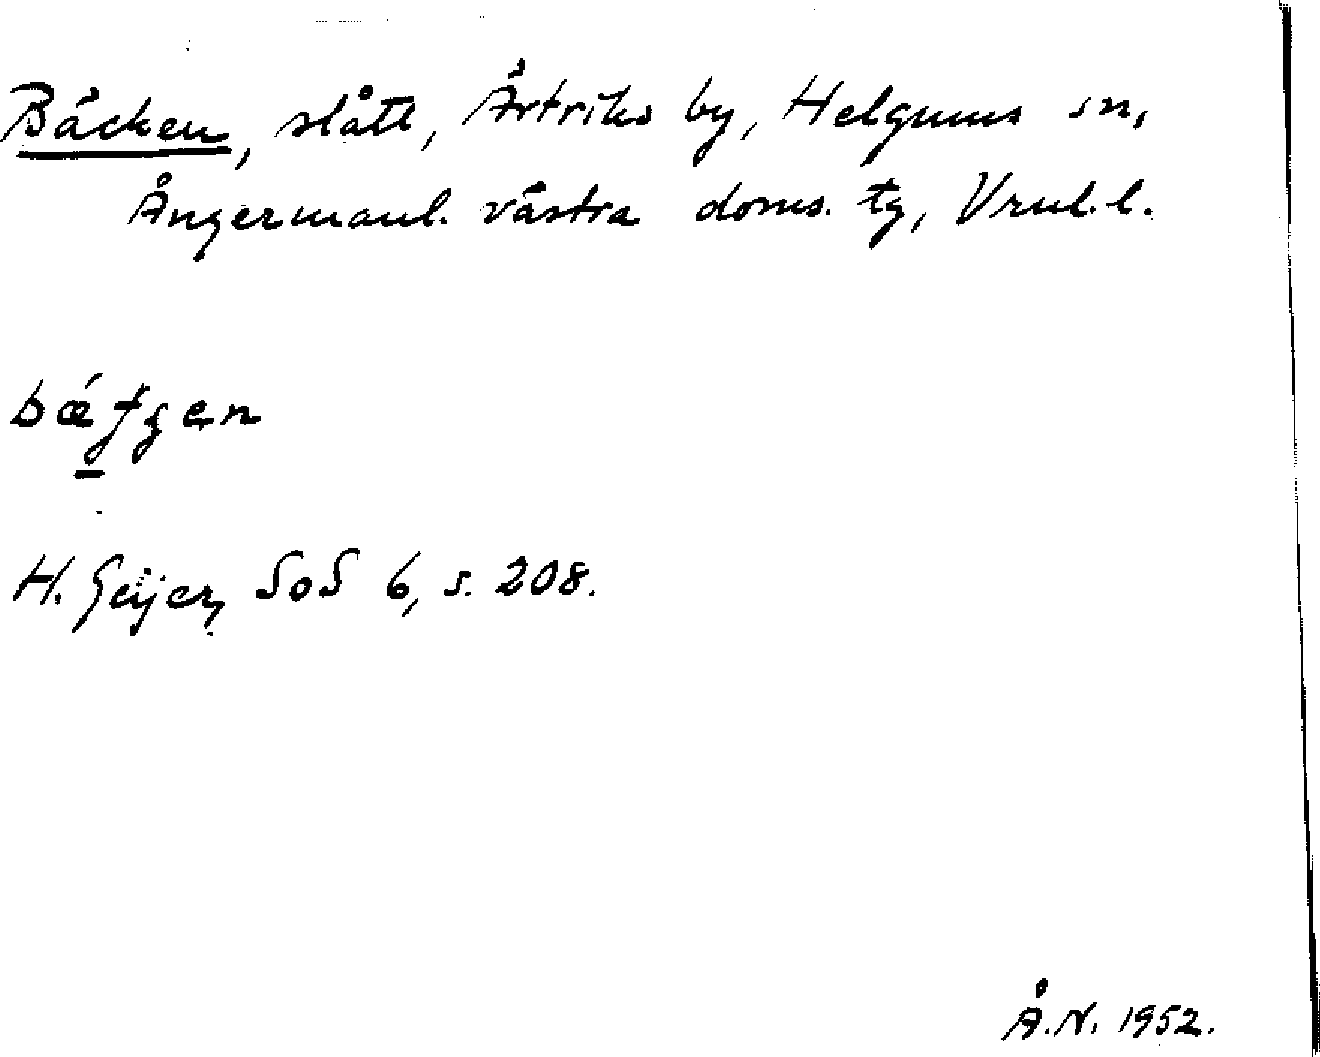 Bäcken, slått, Årtriks by, Helgums sn,
Ångermanl. västra doms. tg, Vrnl. l.
H. Geijer, SoS 6, s. 208.
Å.N. 1952.